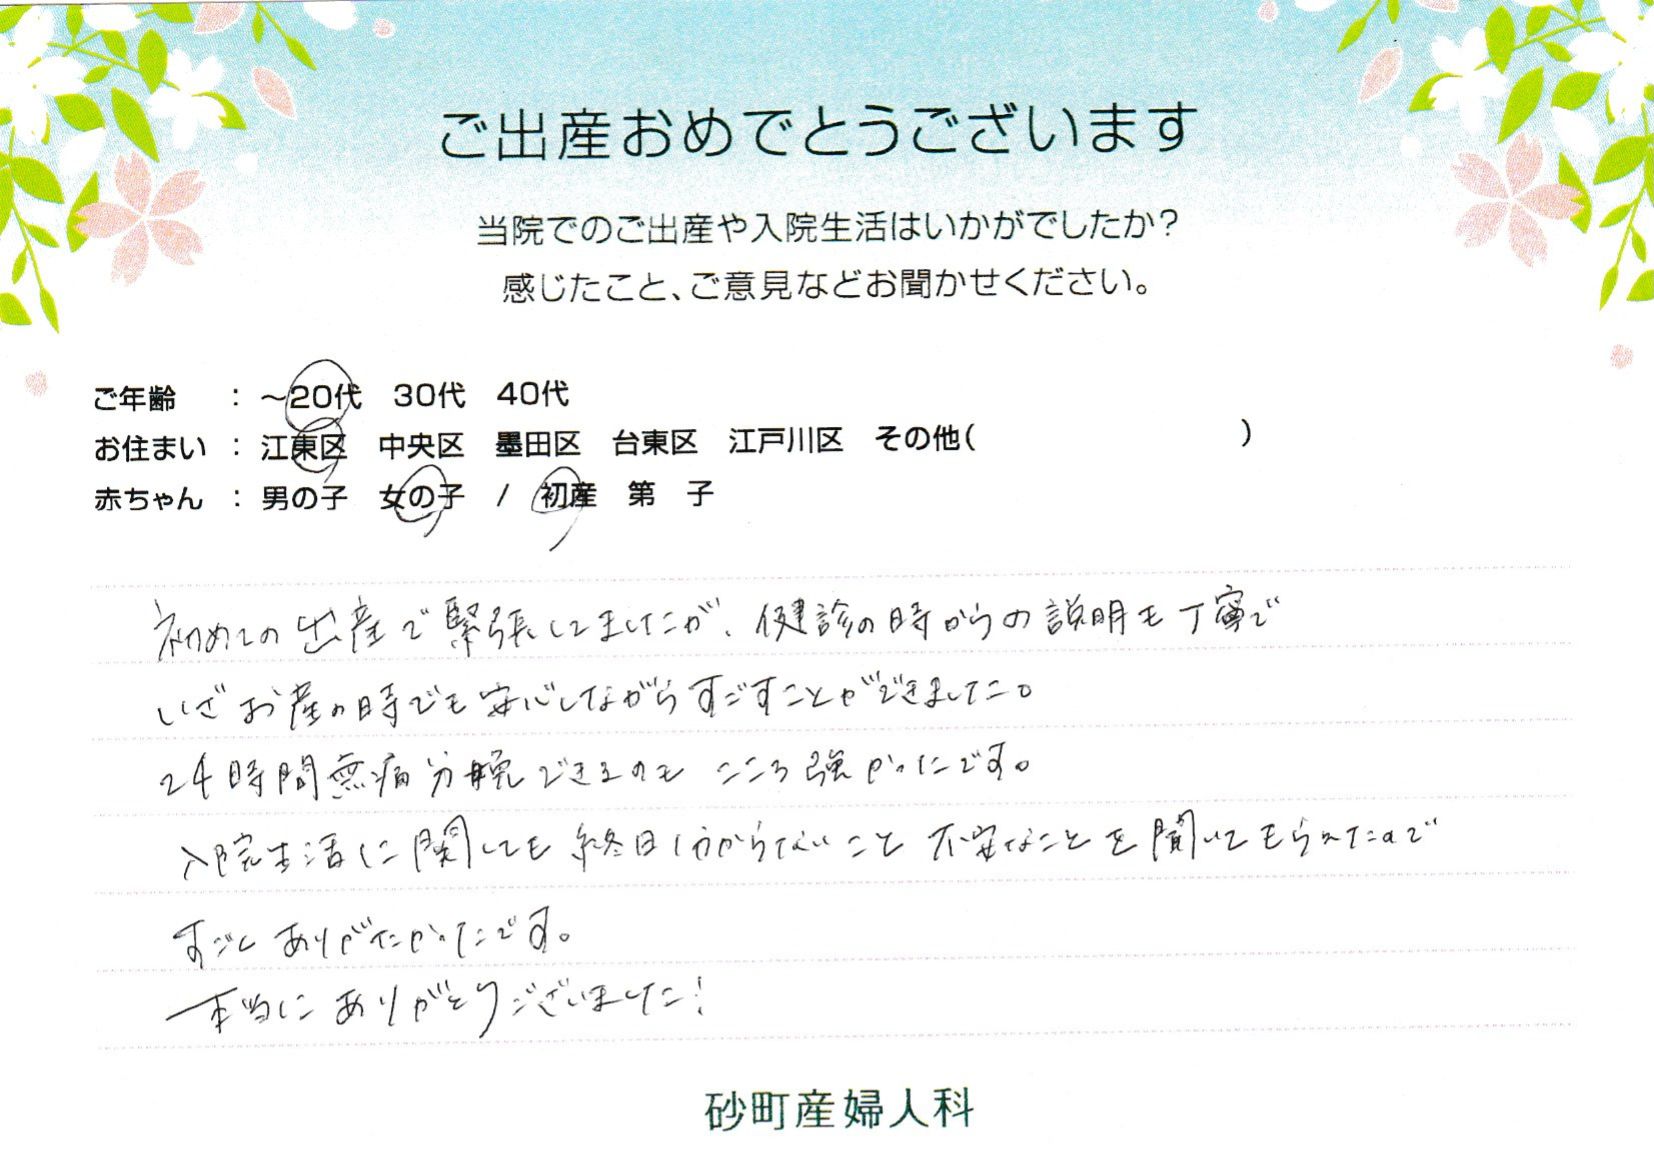 ご出産おめでとうございます
当院でのご出産や入院生活はいかがでしたか？
感じたこと、ご意見などお聞かせください。
ご年齢 ： ～20代 30代 40代
お住まい ： 江東区 中央区 墨田区 台東区 江戸川区 その他（ ）
赤ちゃん ： 男の子 女の子 / 初産 第 子
初めての出産で緊張してましたが、健診の時からの説明も丁寧で
いざお産の時でも安心しながらすごすことができました。
24時間無痛分娩できるのもこころ強かったです。
入院生活に関しても終日分からないこと不安なことを聞いてもらえたので
すごくありがたかったです。
本当にありがとうございました！
砂町産婦人科